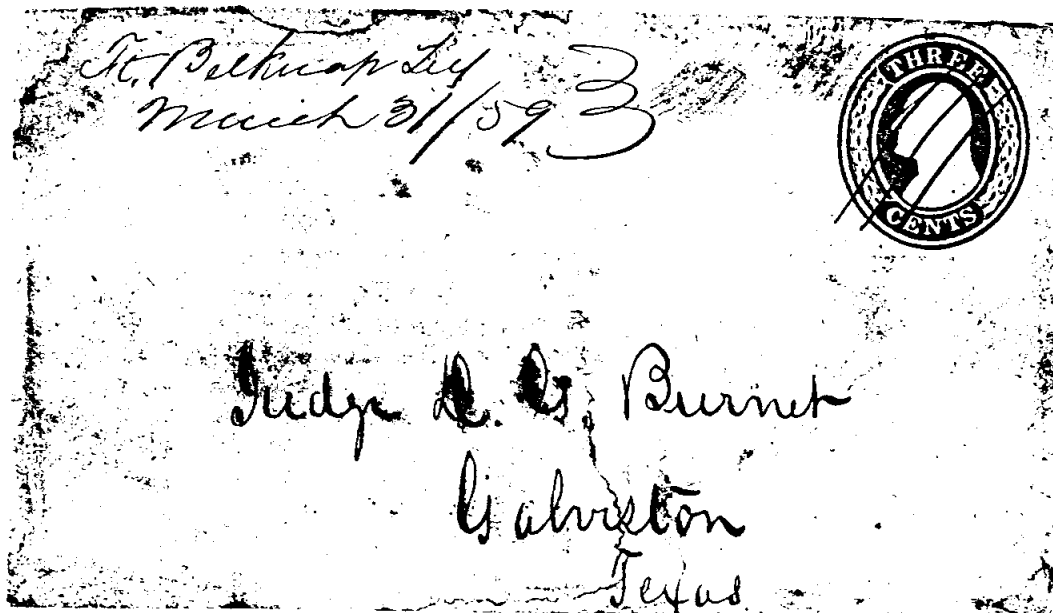 Ft. Belknap Tex
March 31/59 3
THREE
CENTS
Judge D. G. Burnet
Galveston
Texas